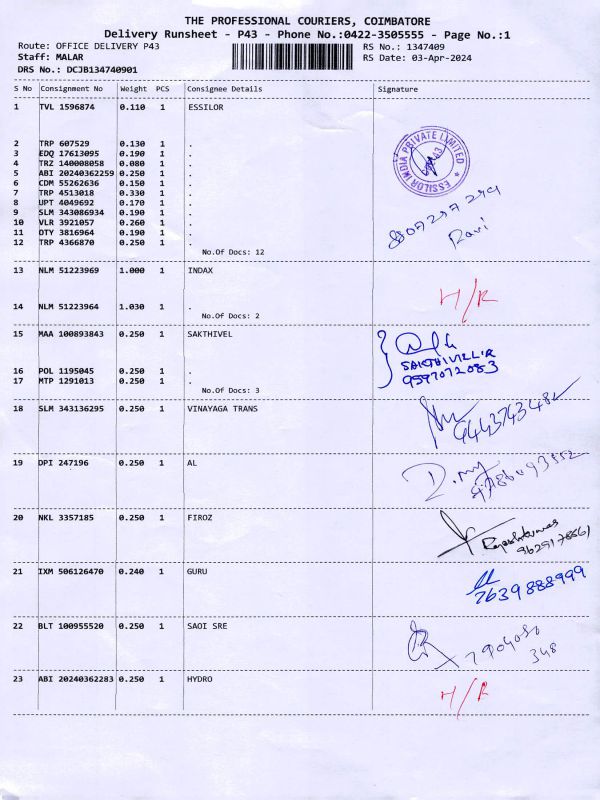 THE PROFESSIONAL COURIERS, COIMBATORE
Delivery Runsheet - P43 - Phone No.:0422-3505555 - Page No.:1
Route: OFFICE DELIVERY P43
RS No.: 1347409
Staff: MALAR
RS Date: 03-Apr-2024
DRS No.: DCJB134740901
S No Consignment No Weight PCS Consignee Details Signature
1 TVL 1596874 0.110 1 ESSILOR
ESSILOR INDIA PRIVATE LIMITED
2 TRP 607529 0.130 1 .
3 EDQ 17613095 0.190 1 .
4 TRZ 140008058 0.080 1 .
5 ABI 20240362259 0.250 1 .
6 CDM 55262636 0.150 1 .
7 TRP 4513018 0.330 1 .
8 UPT 4049692 0.170 1 .
9 SLM 343086934 0.190 1 .
10 VLR 3921057 0.260 1 .
11 DTY 3816964 0.190 1 .
12 TRP 4366870 0.250 1 .
Ravi
No.Of Docs: 12
13 NLM 51223969 1.000 1 INDAX
H/R
14 NLM 51223964 1.030 1 .
No.Of Docs: 2
15 MAA 100893843 0.250 1 SAKTHIVEL
16 POL 1195045 0.250 1 .
17 MTP 1291013 0.250 1 .
9597072083
No.Of Docs: 3
18 SLM 343136295 0.250 1 VINAYAGA TRANS
19 DPI 247196 0.250 1 AL
20 NKL 3357185 0.250 1 FIROZ
21 IXM 506126470 0.240 1 GURU
7639888999
22 BLT 100955520 0.250 1 SAOI SRE
7904080
348
23 ABI 20240362283 0.250 1 HYDRO
H/R